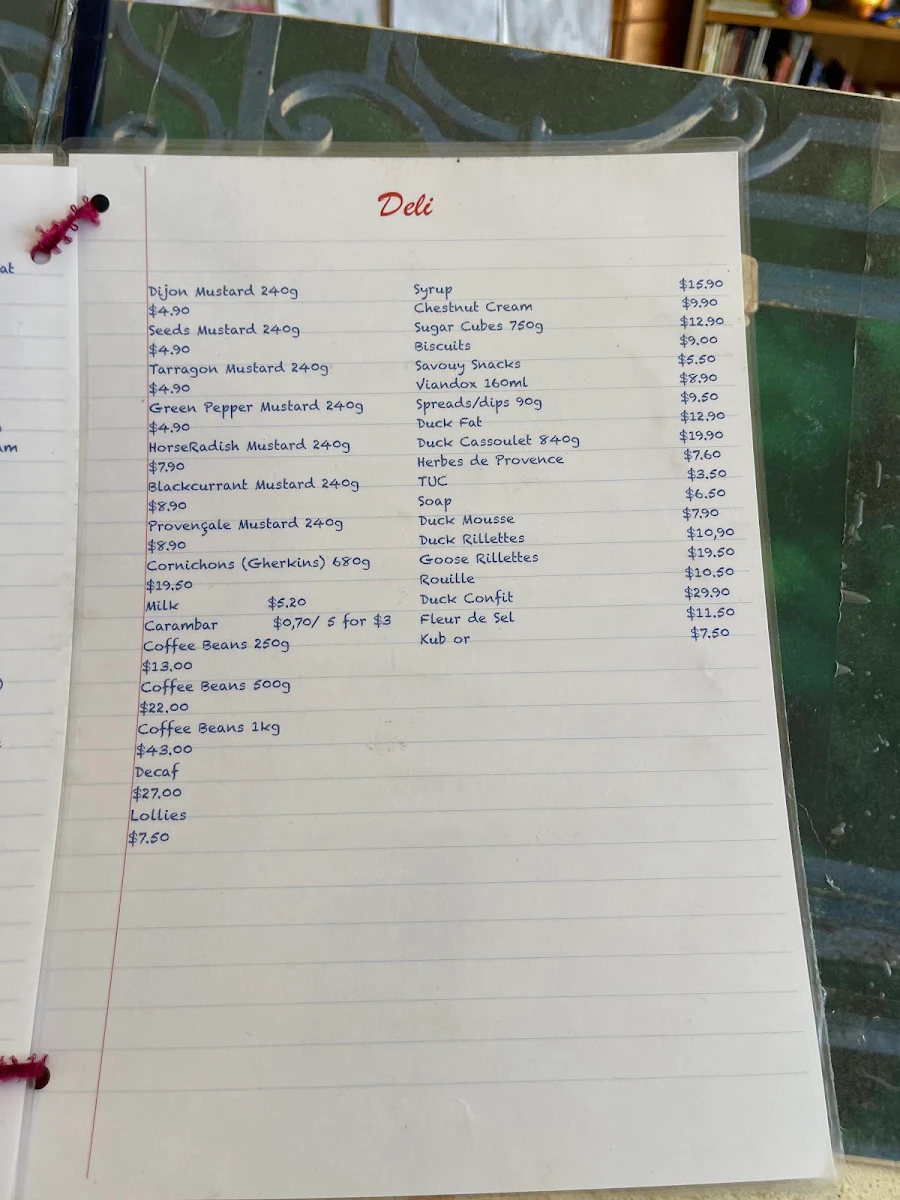 Deli
Dijon Mustard 240g
$4.90
Seeds Mustard 240g
$4.90
Tarragon Mustard 240g
$4.90
Green Pepper Mustard 240g
$4.90
HorseRadish Mustard 240g
$7.90
Blackcurrant Mustard 240g
$8.90
Provençale Mustard 240g
$8.90
Cornichons (Gherkins) 680g
$19.50
Milk $5.20
Carambar $0,70/ 5 for $3
Coffee Beans 250g
$13.00
Coffee Beans 500g
$22.00
Coffee Beans 1kg
$43.00
Decaf
$27.00
Lollies
$7.50
Syrup $15.90
Chestnut Cream $9.90
Sugar Cubes 750g $12.90
Biscuits $9.00
Savouy Snacks $5.50
Viandox 160ml $8.90
Spreads/dips 90g $9.50
Duck Fat $12.90
Duck Cassoulet 840g $19.90
Herbes de Provence $7.60
TUC $3.50
Soap $6.50
Duck Mousse $7.90
Duck Rillettes $10,90
Goose Rillettes $19.50
Rouille $10.50
Duck Confit $29.90
Fleur de Sel $11.50
Kub or $7.50